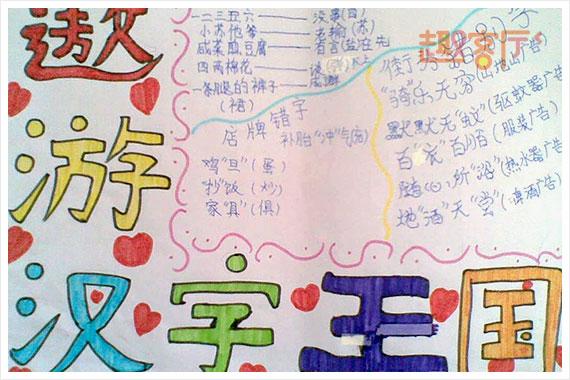 遨游汉字王国
一二三五六——没事(四)
小苏他爷——老输(苏)
咸菜煎豆腐——有言(盐)在先
四两棉花——谈
一条腿的裤子——
(裙)
店牌错字
补胎"冲"气(充)
鸡"旦"(蛋)
抄"饭"(炒)
家"具"(俱)
街
"骑"乐无穷(山地车广告)
默默无"蚊"(驱蚊器广告)
百"衣"百顺(服装广告)
随心所"浴"(热水器广告)
地"酒"天"堂"(啤酒广告)
趣客厅